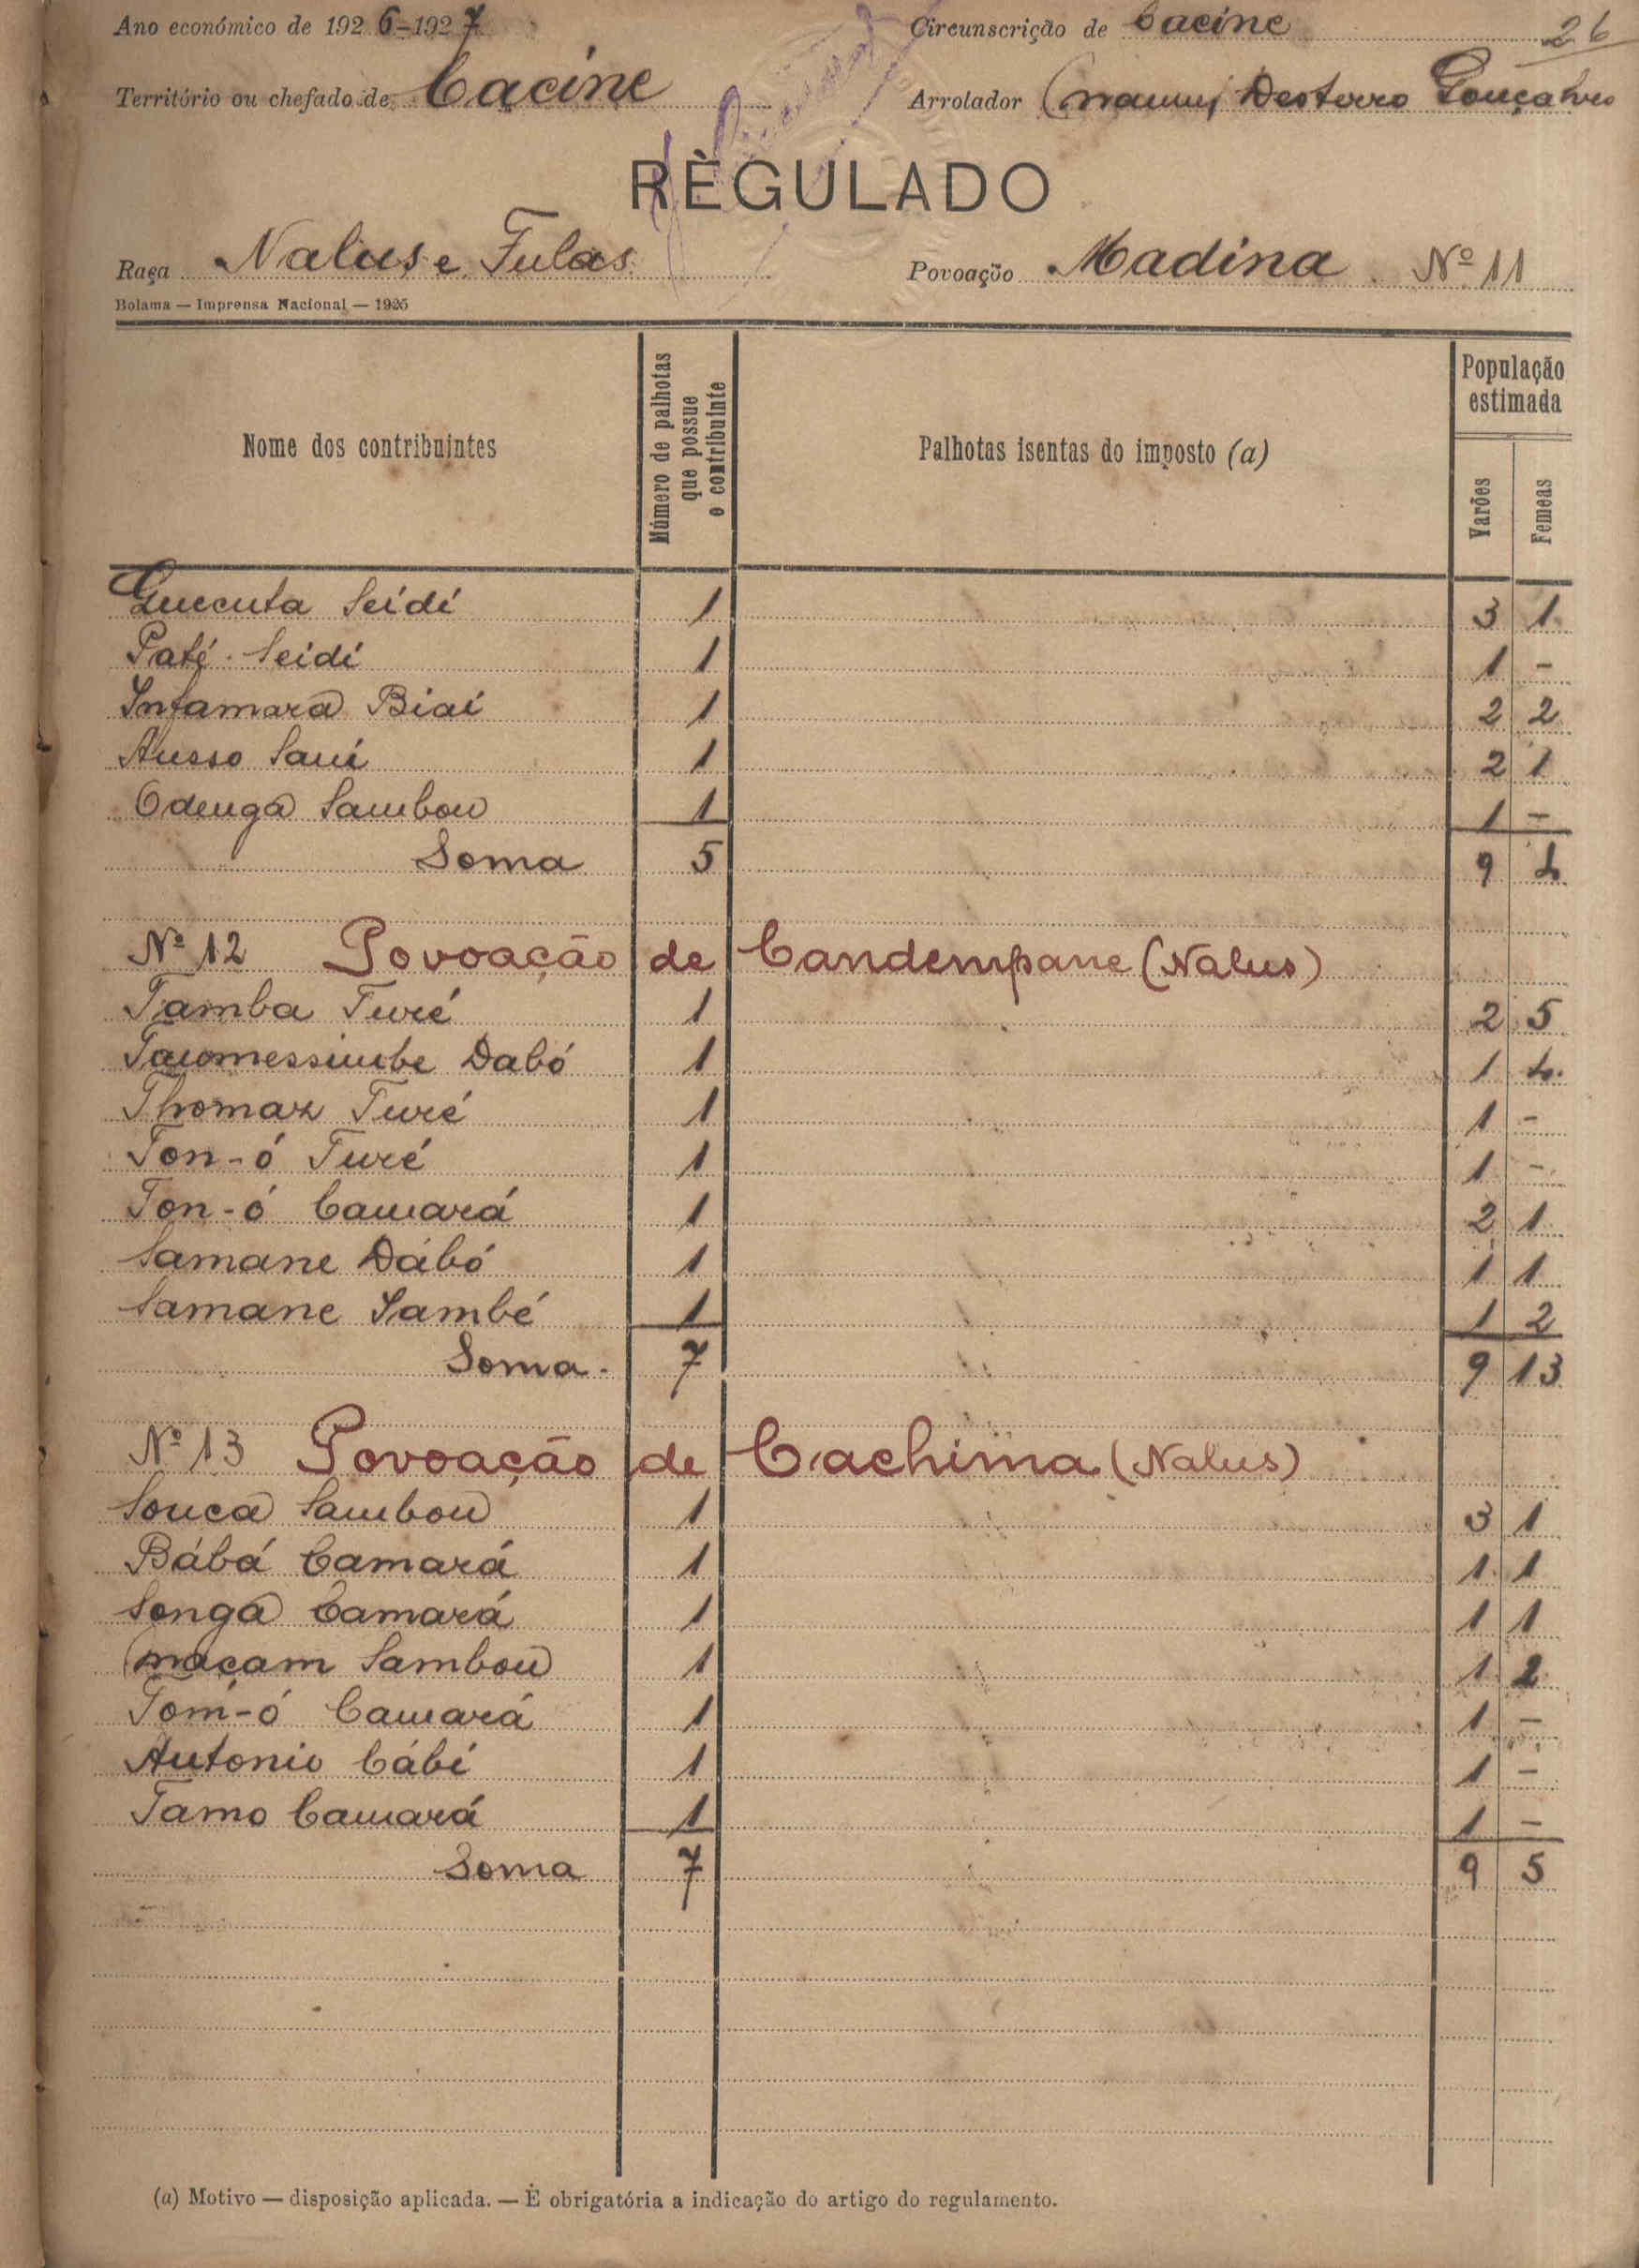 Ano económico de 1926-1927 Circunscrição de Cacine 26
Território ou chefado de Cacine Arrolador Manuel Desterro Gonçalves
RÈGULADO
Raça Nalus e Fulas Povoação Madina Nº 11
Bolama — Imprensa Nacional — 1925
Nome dos contribuintes Número de palhotas que possue o contribuinte Palhotas isentas do imposto (a) População estimada Varões Femeas
Quecuta Seidi 1 3 1
Paté Seidi 1 1 -
Infamara Biai 1 2 2
Ausso Sani 1 2 1
Odenga Sambou 1 1 -
Soma 5 9 4
Nº 12 Povoação de Candempane (Nalus)
Tamba Turé 1 2 5
Dabó 1 1 4
Thomaz Turé 1 1 -
Ton-ó Turé 1 1 -
Ton-ó Camará 1 2 1
Samane Dábó 1 1 1
Samane Sambé 1 1 2
Soma 7 9 13
Nº 13 Povoação de Cachima (Nalus)
Souca Sambou 1 3 1
Bábá Camará 1 1 1
Songa Camará 1 1 1
Maçam Sambou 1 1 2
Tom-ó Camará 1 1 -
Antonio Cábi 1 1 -
Tamo Camará 1 1 -
Soma 7 9 5
(a) Motivo — disposição aplicada. — È obrigatória a indicação do artigo do regulamento.